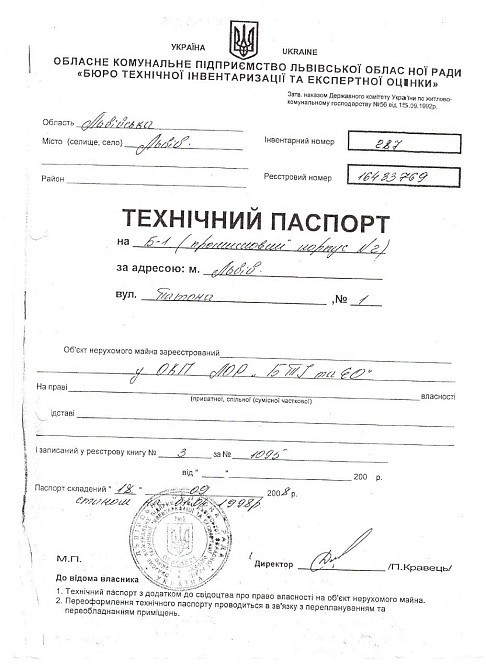 УКРАЇНА UKRAINE
ОБЛАСНЕ КОМУНАЛЬНЕ ПІДПРИЄМСТВО ЛЬВІВСЬКОЇ ОБЛАСНОЇ РАДИ
«БЮРО ТЕХНІЧНОЇ ІНВЕНТАРИЗАЦІЇ ТА ЕКСПЕРТНОЇ ОЦІНКИ»
Затв. наказом Державного комітету України по житлово-
комунальному господарству №56 від 15.09.1992р.
Область Львівська
Місто (селище, село) Львів
Інвентарний номер 287
Район
Реєстровий номер 16433769
ТЕХНІЧНИЙ ПАСПОРТ
на Б-1 (промисловий корпус №2)
за адресою: м. Львів
вул. Патона ,№ 1
Об'єкт нерухомого майна зареєстрований
у ОКП ЛОР „БТІ та ЕО"
На праві власності
(приватної, спільної (сумісної часткової)
підставі
і записаний у реєстрову книгу № 3 за № 1095
від " " 200 р.
Паспорт складений " 18 " 09 2008 р.
станом на 1998р
М.П.
Директор /П.Кравець/
До відома власника
1. Технічний паспорт з додатком до свідоцтва про право власності на об'єкт нерухомого майна.
2. Переоформлення технічного паспорту проводиться в зв'язку з переплануванням та
переобладнанням приміщень.